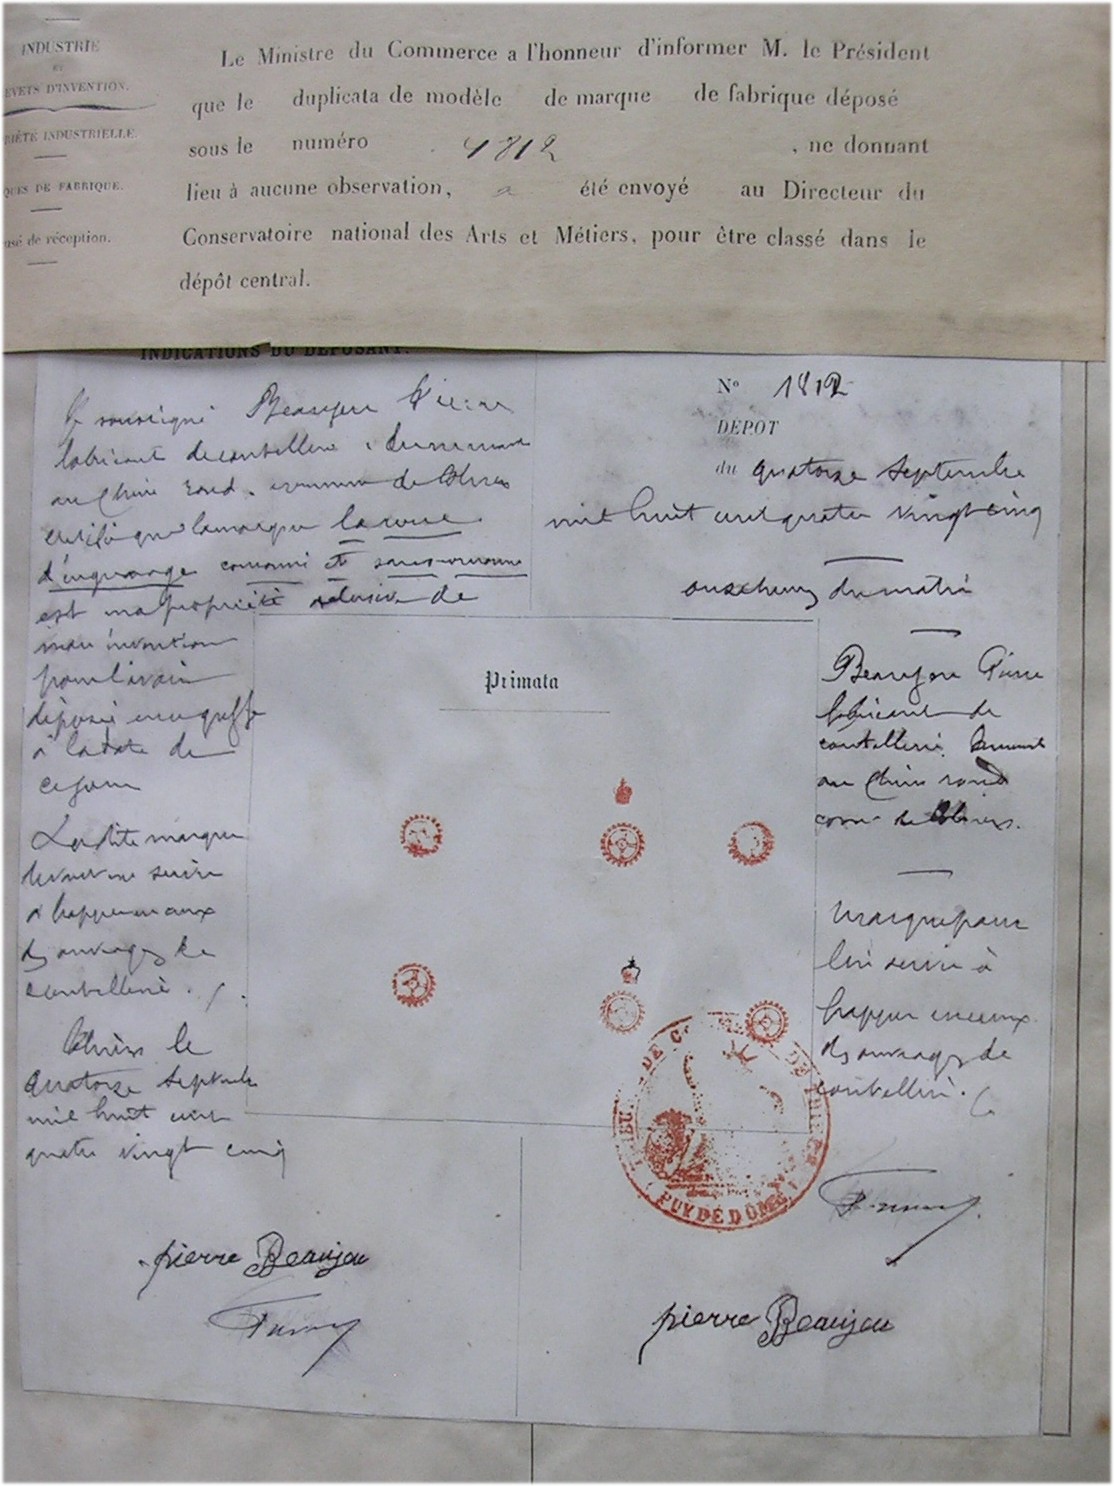 INDUSTRIE
ET
EVETS D'INVENTION.
RIÉTÉ INDUSTRIELLE.
QUES DE FABRIQUE.
usé de réception.
Le Ministre du Commerce a l'honneur d'informer M. le Président
que le duplicata de modèle de marque de fabrique déposé
sous le numéro 1812 , ne donnant
lieu à aucune observation, a été envoyé au Directeur du
Conservatoire national des Arts et Métiers, pour être classé dans le
dépôt central.
INDICATIONS DU DÉPOSANT.
Je soussigné Beaujeu Pierre
fabricant de coutellerie demeurant
au Chêne rond commune de Thiers
certifie que la marque la roue
d'engrenage couronné et sans couronne
est ma propriété exclusive de
mon invention
pour l'avoir
déposé au greffe
à la date de
ce jour
La dite marque
devant me servir
à frapper
des ouvrages de
coutellerie.
Thiers le
quatorze septembre
mil huit cent
quatre vingt cinq
pierre Beaujeu
N° 1812
DÉPOT
du quatorze septembre
mil huit cent quatre vingt cinq
onze heures du matin
Beaujeu Pierre
fabricant de
coutellerie demeurant
au Chêne rond
comne de Thiers.
Marque pour
lui servir à
frapper
des ouvrages de
coutellerie.
Primata
PUY DE DÔME
pierre Beaujeu